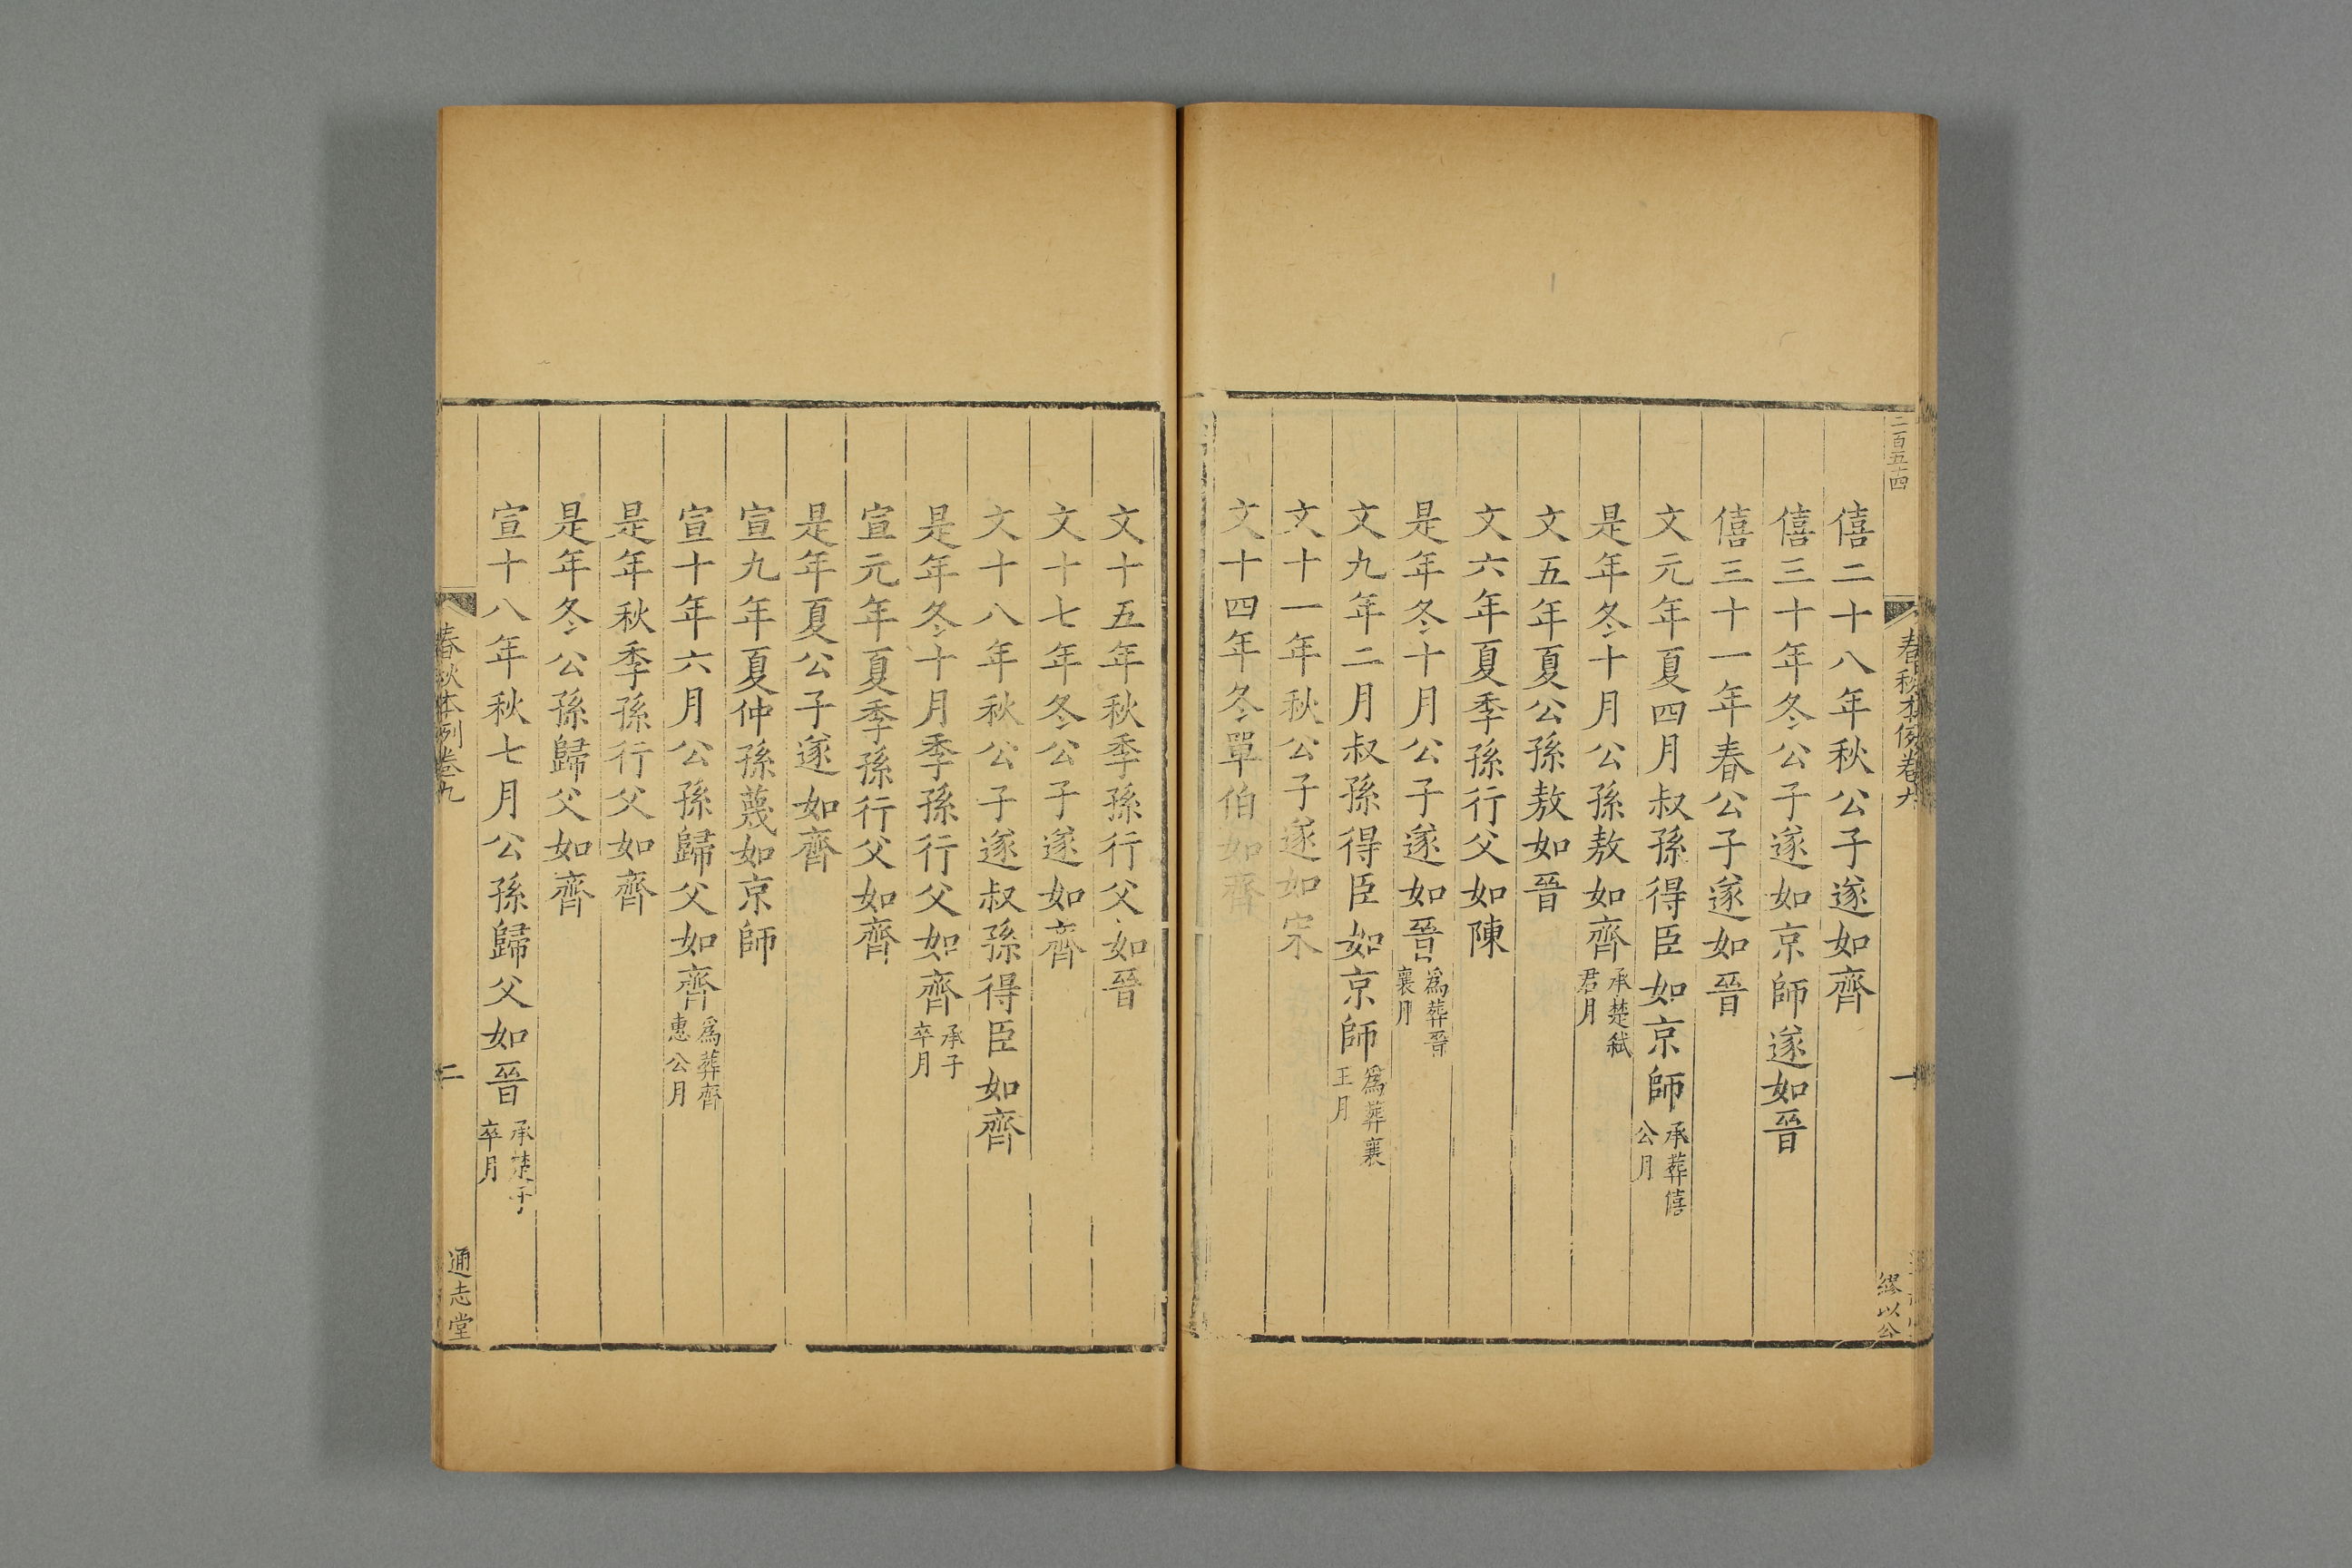 二百五四
春秋本例卷九
一
繆以公
僖二十八年秋公子遂如齊
僖三十年冬公子遂如京師遂如晉
僖三十一年春公子遂如晉
文元年夏四月叔孫得臣如京師承葬僖公月
是年冬十月公孫敖如齊承楚弒君月
文五年夏公孫敖如晉
文六年夏季孫行父如陳
是年冬十月公子遂如晉為葬晉襄月
文九年二月叔孫得臣如京師為葬襄王月
文十一年秋公子遂如宋
文十四年冬單伯如齊
文十五年秋季孫行父如晉
文十七年冬公子遂如齊
文十八年秋公子遂叔孫得臣如齊
是年冬十月季孫行父如齊承子卒月
宣元年夏季孫行父如齊
是年夏公子遂如齊
宣九年夏仲孫蔑如京師
宣十年六月公孫歸父如齊為葬齊惠公月
是年秋季孫行父如齊
是年冬公孫歸父如齊
宣十八年秋七月公孫歸父如晉承楚子卒月
春秋本例卷九
二
通志堂